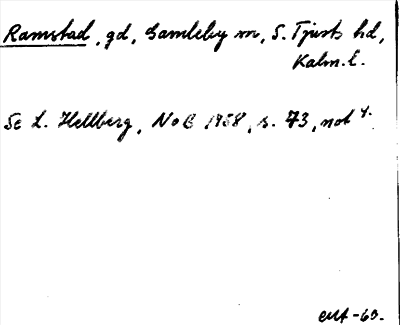 Ramstad, gd, Gamleby sn, S. Tjusts hd,
Kalm. l.
Se L. Hellberg, NoB 1958, s. 73, not 4.
-60.